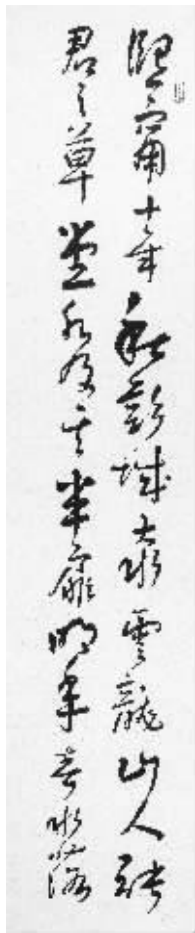 熙寧十年秋彭城大水雲龍山人張
君之草堂水及其半扉明年春水落